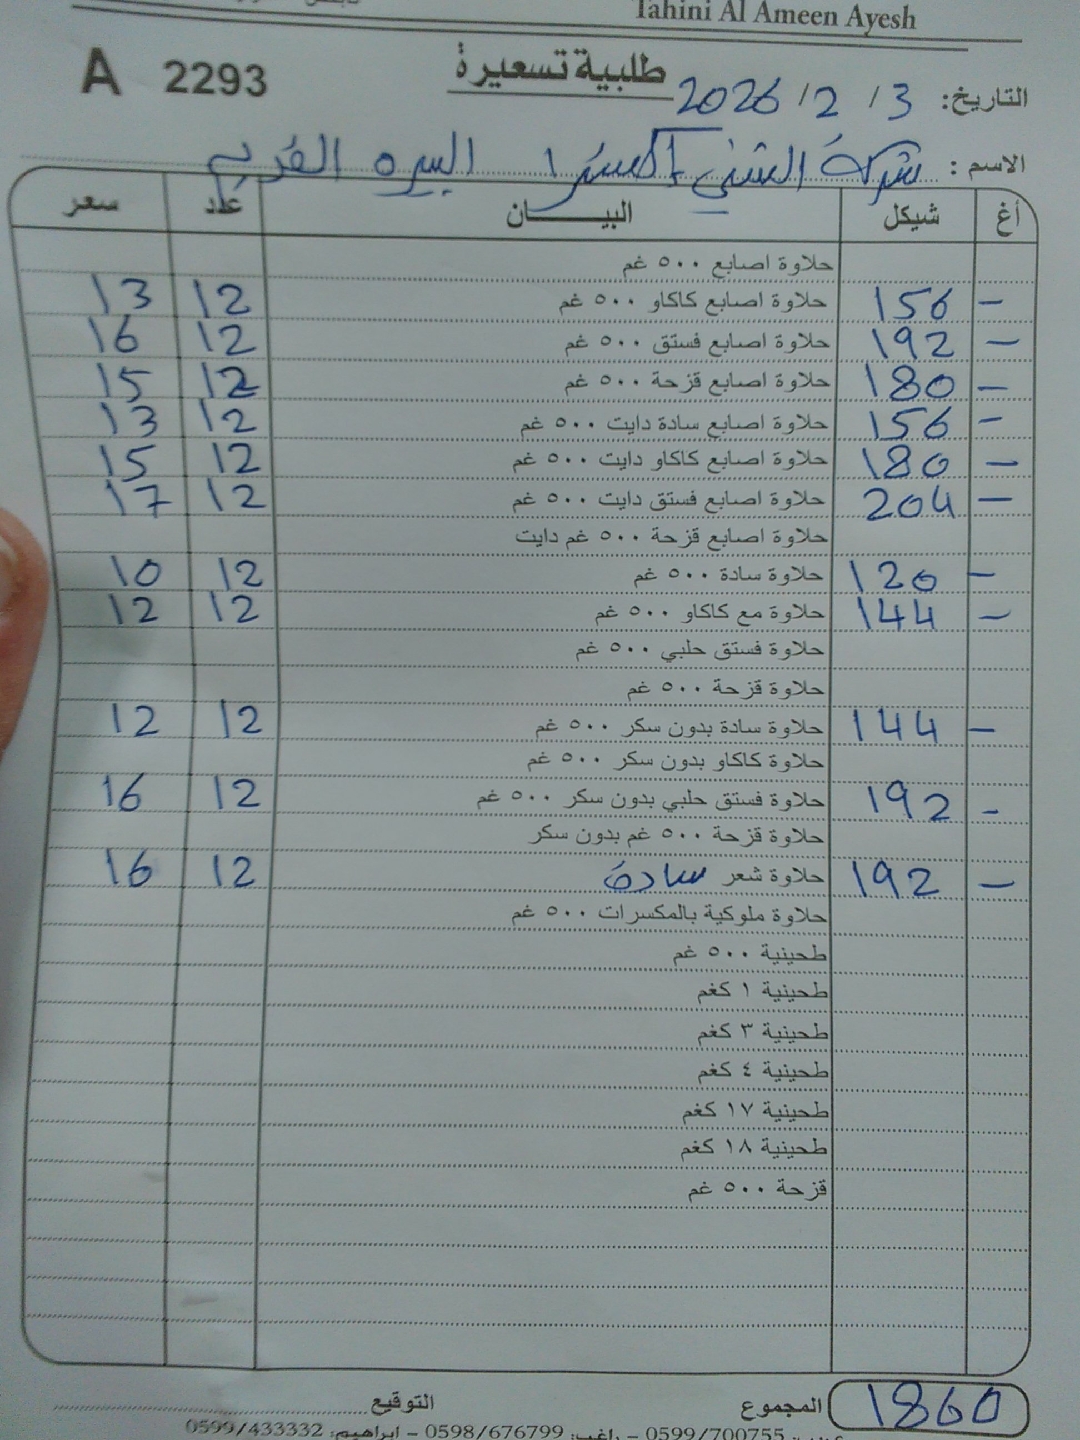 Tahini Al Ameen Ayesh
A 2293 طلبية تسعيرة التاريخ: 3 / 2 / 2026
الاسم : شركة
أغ شيكل البيـــــان عدد سعر
حلاوة اصابع ٥٠٠ غم
- 156 حلاوة اصابع كاكاو ٥٠٠ غم 12 13
- 192 حلاوة اصابع فستق ٥٠٠ غم 12 16
- 180 حلاوة اصابع قزحة ٥٠٠ غم 12 15
- 156 حلاوة اصابع سادة دايت ٥٠٠ غم 12 13
- 180 حلاوة اصابع كاكاو دايت ٥٠٠ غم 12 15
- 204 حلاوة اصابع فستق دايت ٥٠٠ غم 12 17
حلاوة اصابع قزحة ٥٠٠ غم دايت
- 120 حلاوة سادة ٥٠٠ غم 12 10
- 144 حلاوة مع كاكاو ٥٠٠ غم 12 12
حلاوة فستق حلبي ٥٠٠ غم
حلاوة قزحة ٥٠٠ غم
- 144 حلاوة سادة بدون سكر ٥٠٠ غم 12 12
حلاوة كاكاو بدون سكر ٥٠٠ غم
- 192 حلاوة فستق حلبي بدون سكر ٥٠٠ غم 12 16
حلاوة قزحة ٥٠٠ غم بدون سكر
- 192 حلاوة شعر سادة 12 16
حلاوة ملوكية بالمكسرات ٥٠٠ غم
طحينية ٥٠٠ غم
طحينية ١ كغم
طحينية ٣ كغم
طحينية ٤ كغم
طحينية ١٧ كغم
طحينية ١٨ كغم
قزحة ٥٠٠ غم
1860 المجموع التوقيع
0599/700755 – راغب: 0598/676799 – ابراهيم: 0599/433332